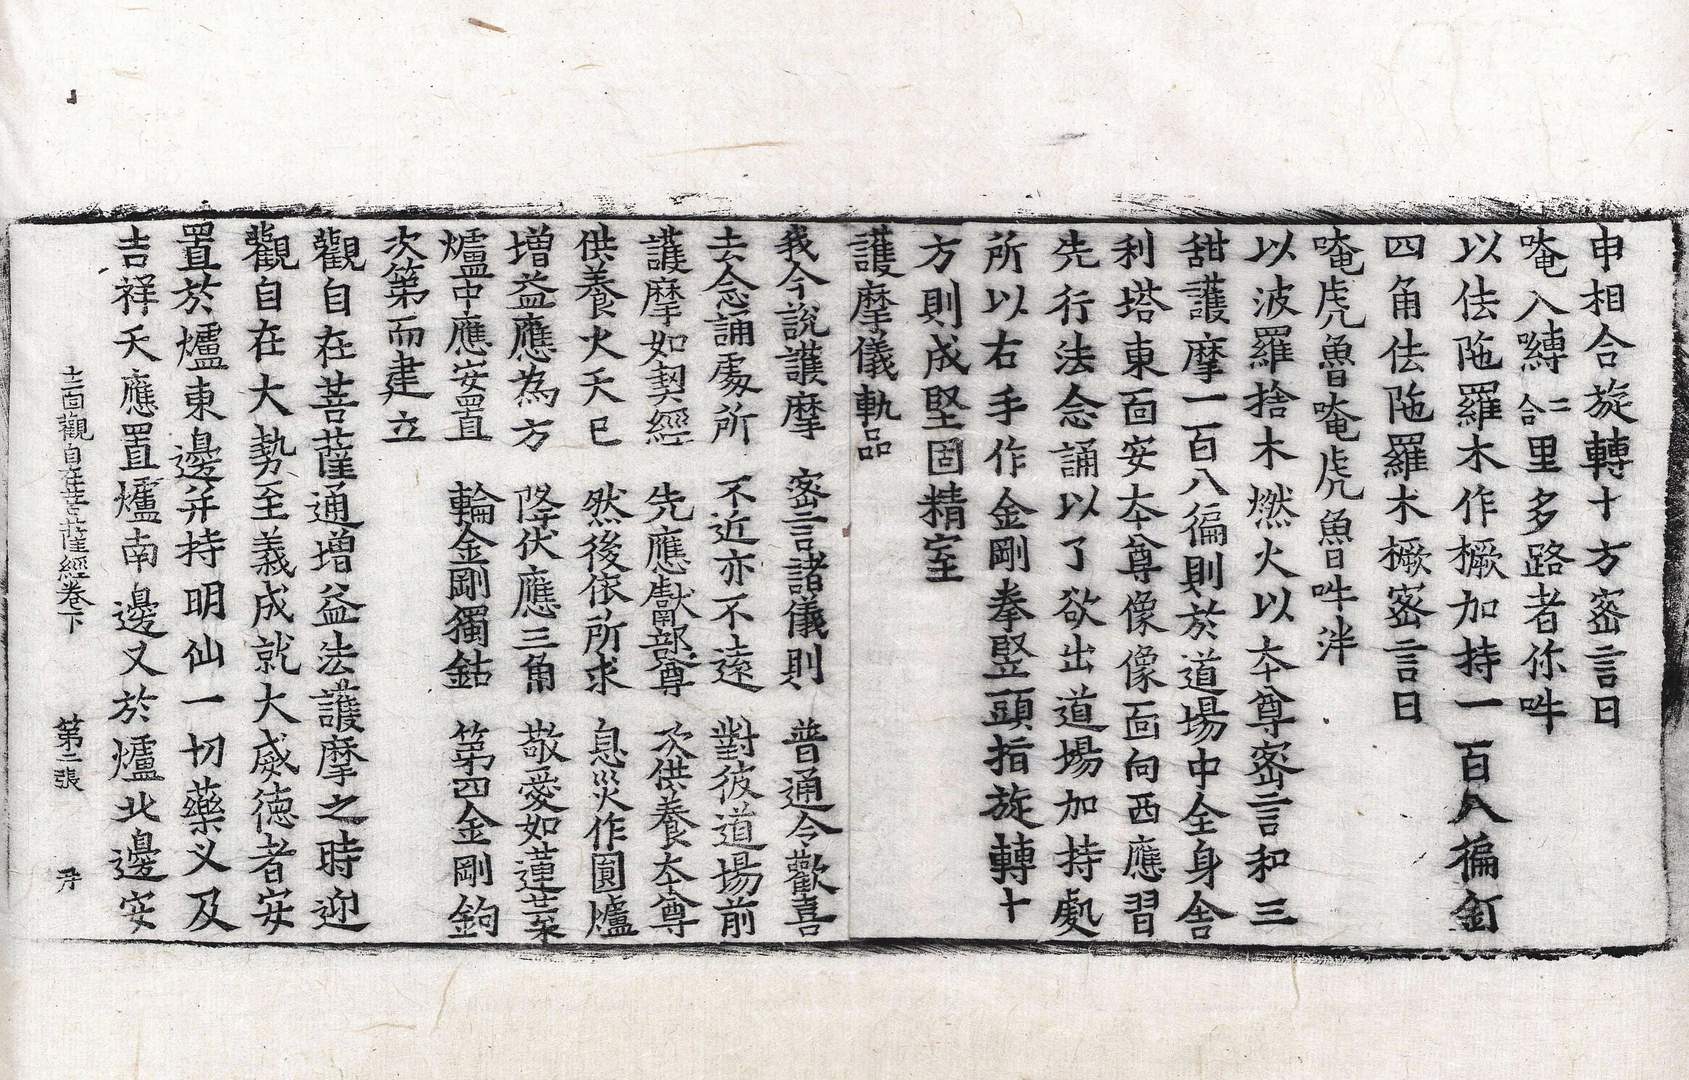 申相合旋轉十方密言曰
唵入嚩二合里多路者你吽
以佉陁羅木作橛加持一百八徧釘
四角佉陁羅木橛密言曰
唵虎魯唵虎魯吽泮
以波羅捨木燃火以夲尊密言和三
甜護摩一百八徧則於道場中全身舍
利塔東面安夲尊像像面向西應習
先行法念誦以了欲出道場加持處
所以右手作金剛拳竪頭指旋轉十
方則成堅固精室
護摩儀軌品
我今說護摩 密言諸儀則 普通令歡喜
去念誦處所 不近亦不遠 對彼道場前
護摩如契經 先應獻部尊 次供養夲尊
供養火天已 然後依所求 息災作圓爐
增益應為方 降伏應三角 敬愛如蓮葉
爐中應安置 輪金剛獨鈷 第四金剛鉤
次第而建立
觀自在菩薩通增益法護摩之時迎
觀自在大勢至義成就大威徳者安
置於爐東邊并持明仙一切藥义及
吉祥天應置爐南邊又於爐北邊安
十一面觀自在菩薩經卷下 第二張